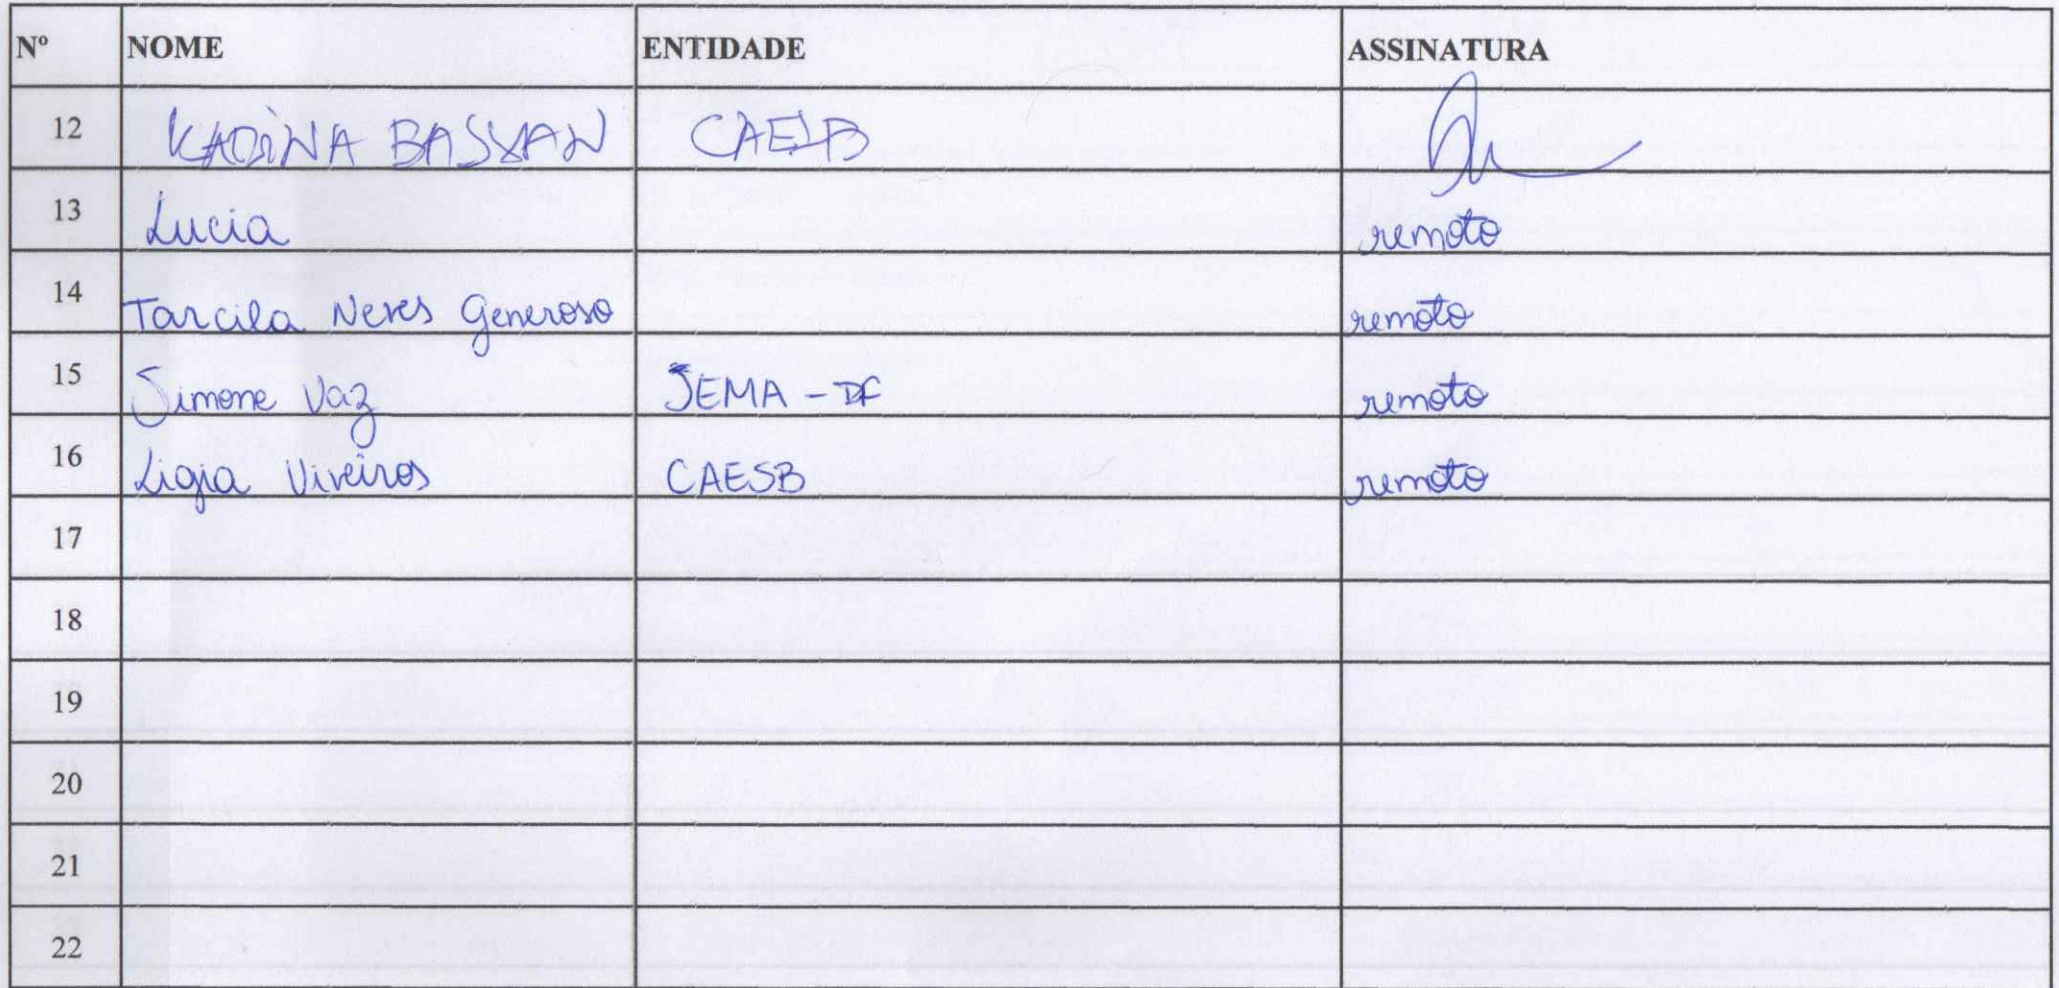 Nº NOME ENTIDADE ASSINATURA
12 KARINA BASSAN CAESB
13 Lucia remoto
14 Tarcila Neves Generoso remoto
15 Simone Vaz SEMA - DF remoto
16 Ligia Viveiros CAESB remoto
17
18
19
20
21
22